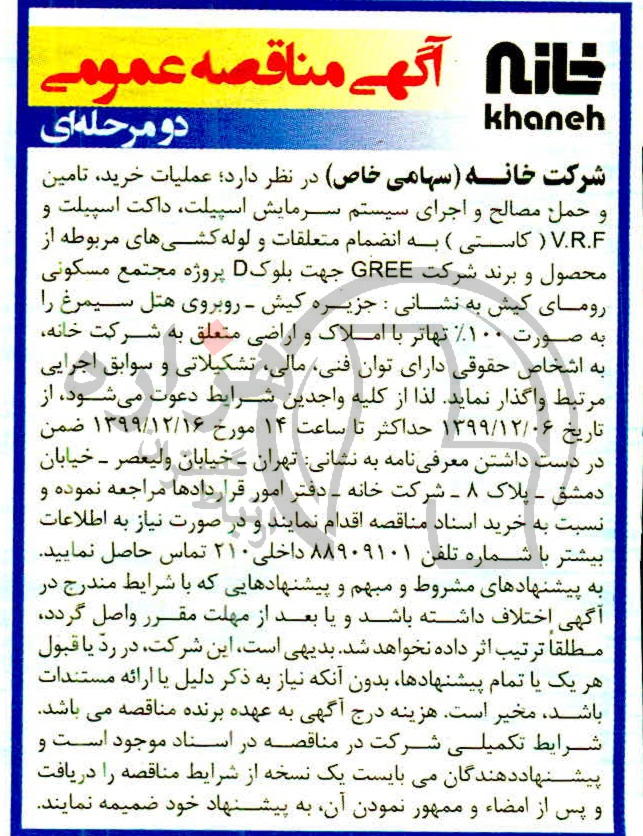 خانه
khaneh
آگهی مناقصه عمومی
دو مرحله‌ای
شرکت خانـــه (سهامی خاص) در نظر دارد؛ عملیات خرید، تامین
و حمل مصالح و اجرای سیستم سرمایش اسپیلت، داکت اسپیلت و
V.R.F ( کاستی ) به انضمام متعلقات و لوله‌کشی‌های مربوطه از
محصول و برند شرکت GREE جهت بلوک D پروژه مجتمع مسکونی
رومای کیش به نشانی : جزیره کیش ـ روبروی هتل سیمرغ را
به صورت ۱۰۰٪ تهاتر با املاک و اراضی متعلق به شرکت خانه،
به اشخاص حقوقی دارای توان فنی، مالی، تشکیلاتی و سوابق اجرایی
مرتبط واگذار نماید. لذا از کلیه واجدین شرایط دعوت می‌شود، از
تاریخ ۱۳۹۹/۱۲/۰۶ حداکثر تا ساعت ۱۴ مورخ ۱۳۹۹/۱۲/۱۶ ضمن
در دست داشتن معرفی‌نامه به نشانی: تهران ـ خیابان ولیعصر ـ خیابان
دمشق ـ پلاک ۸ ـ شرکت خانه ـ دفتر امور قراردادها مراجعه نموده و
نسبت به خرید اسناد مناقصه اقدام نمایند و در صورت نیاز به اطلاعات
بیشتر با شماره تلفن ۸۸۹۰۹۱۰۱ داخلی ۲۱۰ تماس حاصل نمایید.
به پیشنهادهای مشروط و مبهم و پیشنهادهایی که با شرایط مندرج در
آگهی اختلاف داشته باشد و یا بعد از مهلت مقرر واصل گردد،
مطلقاً ترتیب اثر داده نخواهد شد. بدیهی است، این شرکت، در ردّ یا قبول
هر یک یا تمام پیشنهادها، بدون آنکه نیاز به ذکر دلیل یا ارائه مستندات
باشد، مخیر است. هزینه درج آگهی به عهده برنده مناقصه می باشد.
شرایط تکمیلی شرکت در مناقصه در اسناد موجود است و
پیشنهاددهندگان می بایست یک نسخه از شرایط مناقصه را دریافت
و پس از امضاء و ممهور نمودن آن، به پیشنهاد خود ضمیمه نمایند.
هزاره